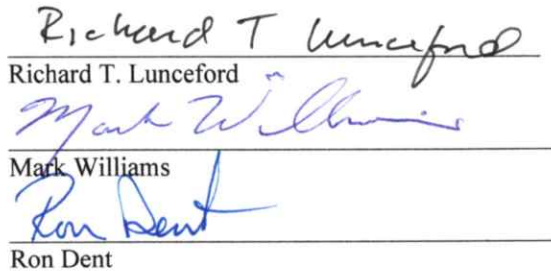 Richard T Lunceford
Richard T. Lunceford
Mark Williams
Mark Williams
Ron Dent
Ron Dent